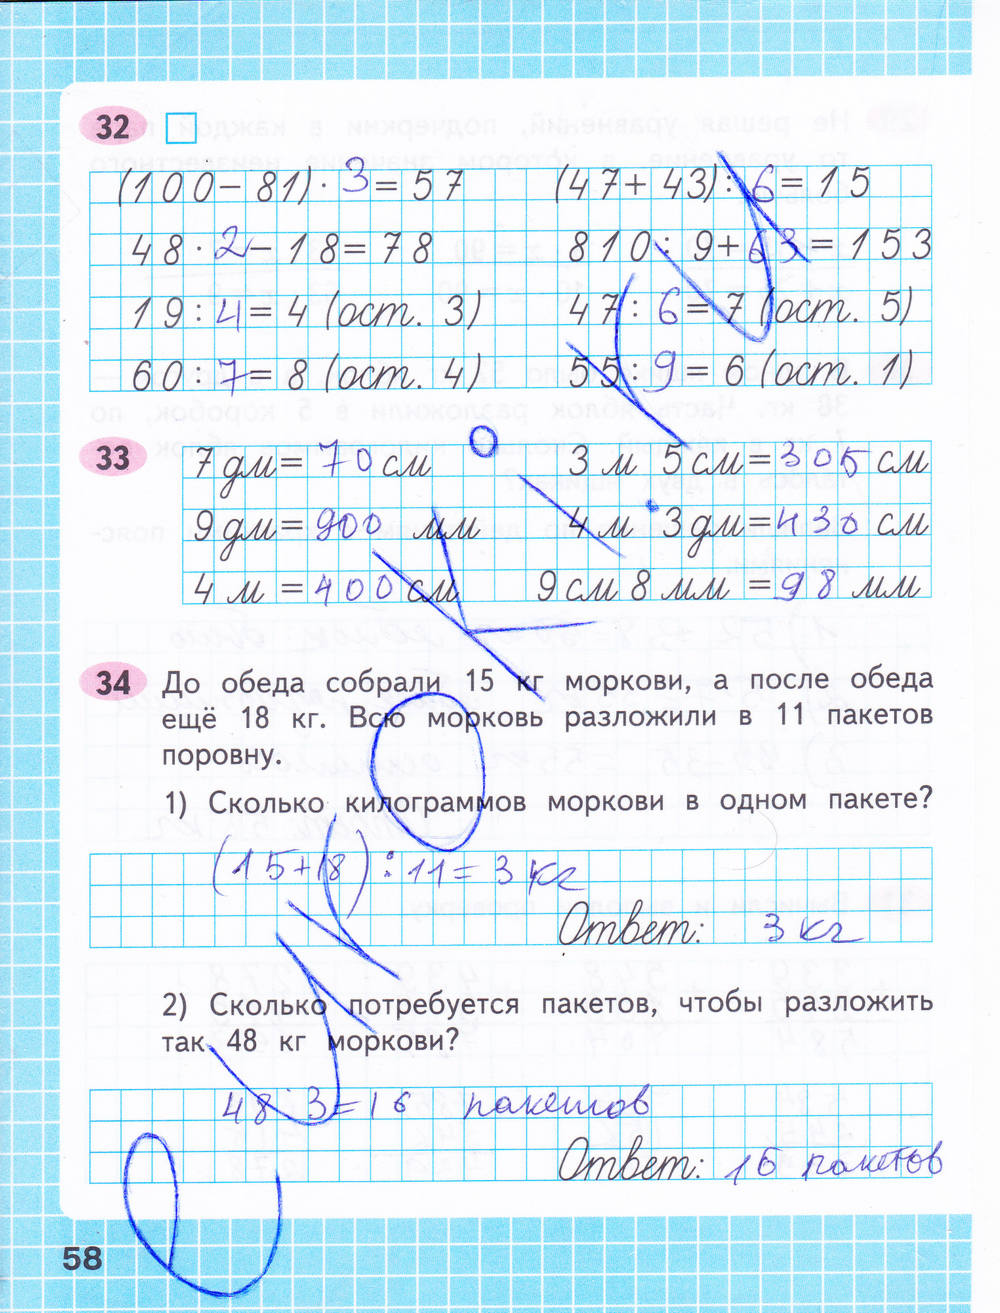 32
(100-81)·3=57 (47+43):6=15
48·2-18=78 810:9+63=153
19:4=4 (ост. 3) 47:6=7 (ост. 5)
60:7=8 (ост. 4) 55:9=6 (ост. 1)
33
7 дм=70 см 3 м 5 см=305 см
9 дм=900 мм 4 м 3 дм=430 см
4 м =400 см 9 см 8 мм =98 мм
34 До обеда собрали 15 кг моркови, а после обеда
ещё 18 кг. Всю морковь разложили в 11 пакетов
поровну.
1) Сколько килограммов моркови в одном пакете?
(15+18):11=3 кг
Ответ: 3 кг
2) Сколько потребуется пакетов, чтобы разложить
так 48 кг моркови?
48:3=16 пакетов
Ответ: 16 пакетов
58